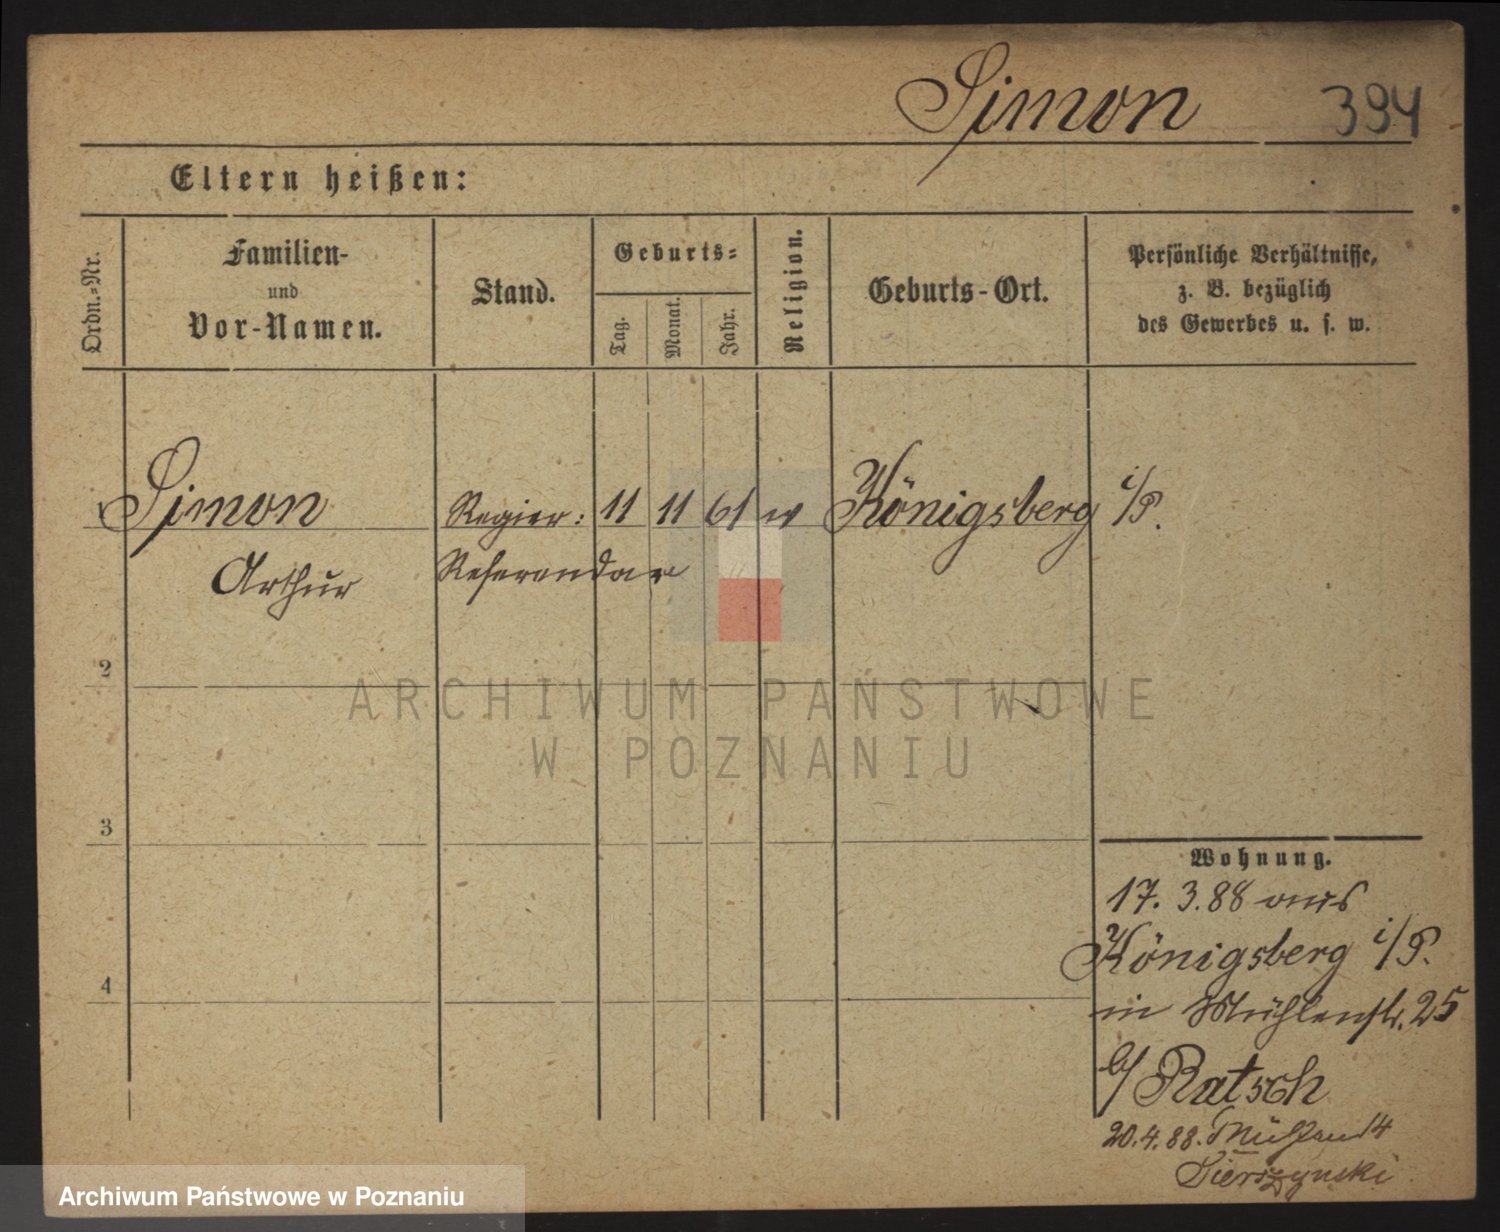 Simon 394
Eltern heißen:
Ordn.-Nr.
Familien-
und
Vor-Namen.
Stand.
Geburts-
Tag.
Monat.
Jahr.
Religion.
Geburts-Ort.
Persönliche Verhältnisse,
z. B. bezüglich
des Gewerbes u. s. w.
1 Simon Regier: 11 11 61 Königsberg i/P.
Arthur Referendar
2
ARCHIWUM PAŃSTWOWE
W POZNANIU
3
Wohnung.
17. 3. 88 aus
Königsberg i/P.
in Mühlenstr. 25
b/ Ratsch
4
20.4.88. Mühlen 14
Archiwum Państwowe w Poznaniu